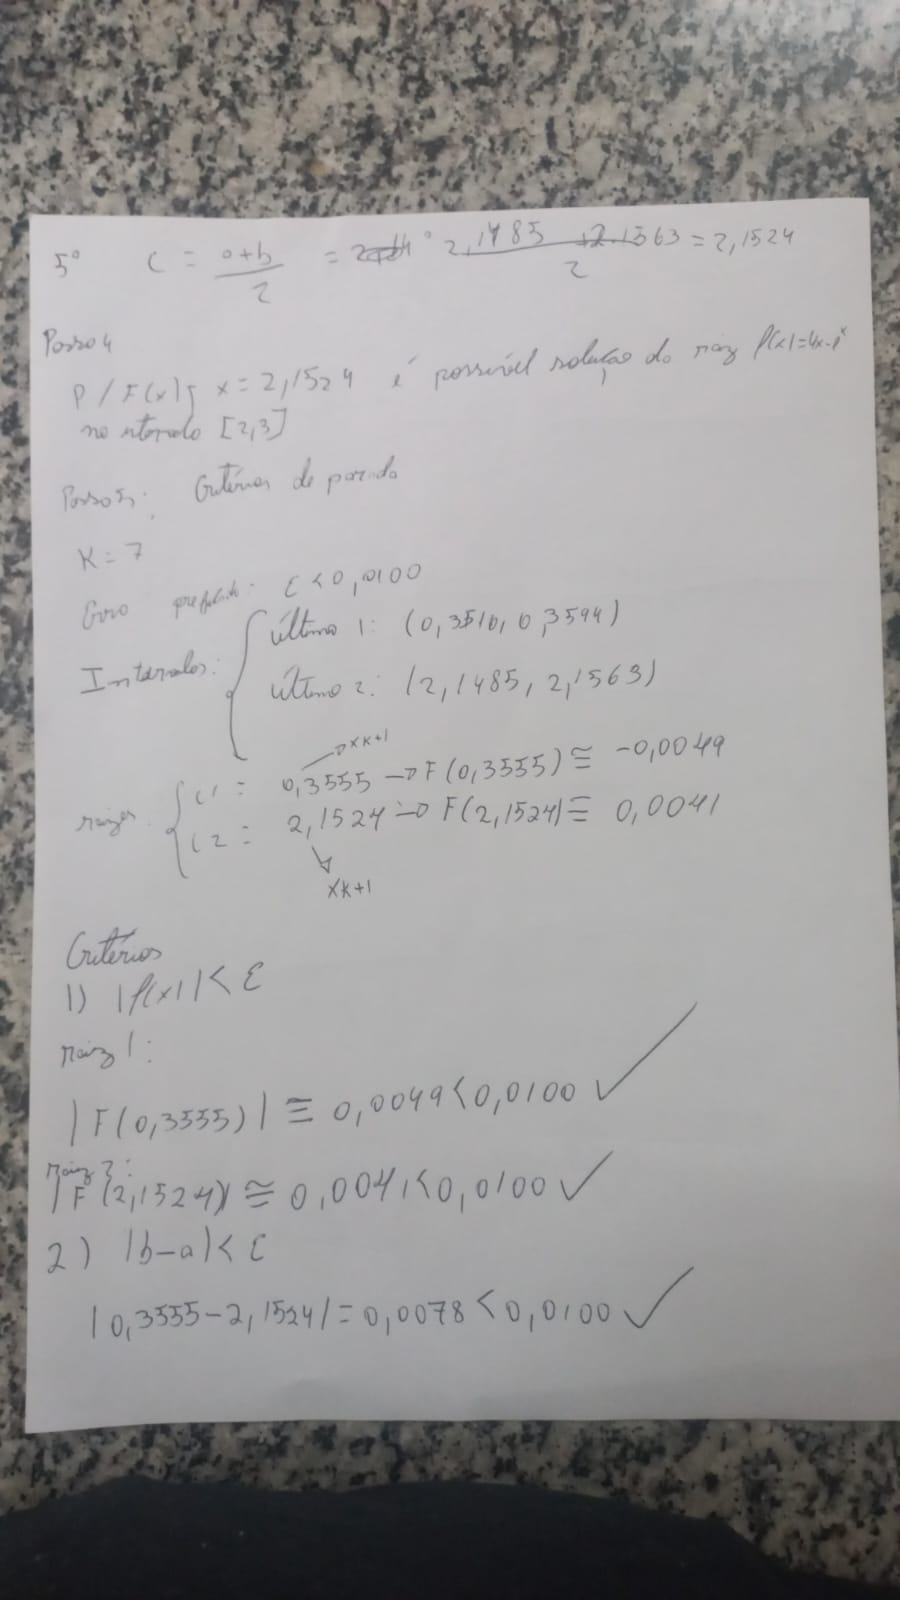 5° C = a+b/2 = 2,1485 +2.1563/2 = 2,1524
Passo 4
P/F(x); x = 2,1524 é possível solução do raiz f(x)=4x-e^x
no intervalo [2,3]
Passo 5: Critérios de parada
K = 7
Erro prefixado: ε < 0,0100
Intervalos: { último 1: (0,3516, 0,3594)
último 2: (2,1485, 2,1563)
xk+1
raízes { C1 = 0,3555 → F(0,3555) ≅ -0,0049
C2 = 2,1524 → F(2,1524) ≅ 0,0041
xk+1
Critérios
1) |f(x)| < ε
raiz 1:
|F(0,3555)| ≅ 0,0049 < 0,0100 ✓
raiz 2:
|F(2,1524)| ≅ 0,0041 < 0,0100 ✓
2) |b-a| < ε
|0,3555-2,1524| = 0,0078 < 0,0100 ✓